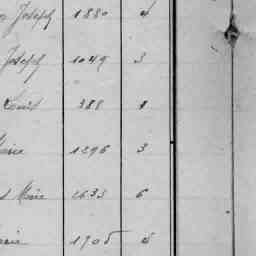 Joseph 1880 4
Joseph 1049 3
Louis 388 1
Marie 1296 3
Marie 2633 6
1705 5